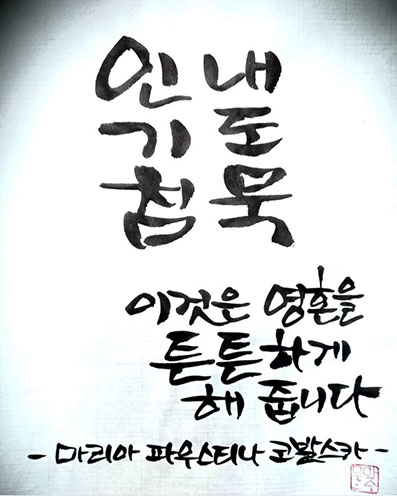 인내
기도
침묵
이것은 영혼을
튼튼하게
해 줍니다
- 마리아 파우스티나 코발스카 -